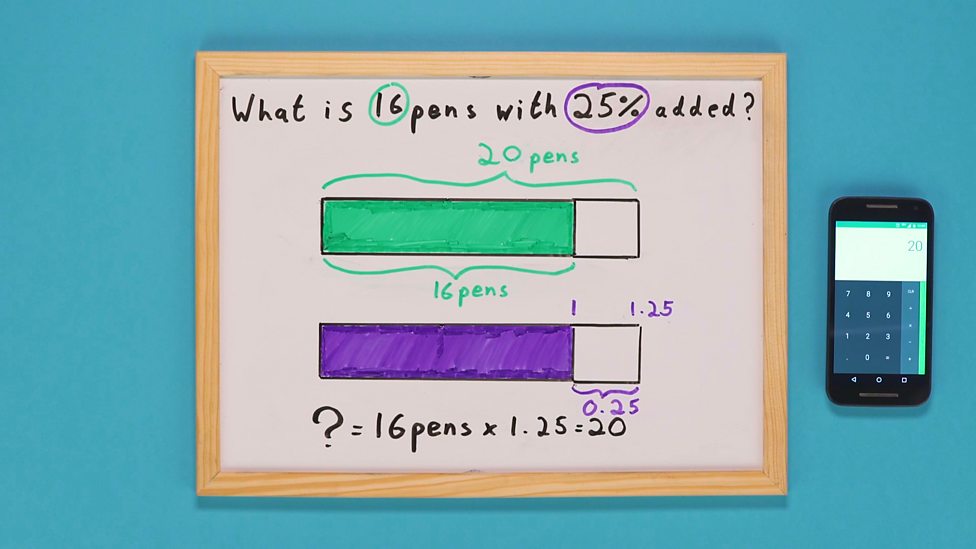 What is 16 pens with 25% added?
20 pens
16 pens
1 1.25
0.25
? = 16 pens x 1.25 = 20
20
7 8 9 CLR
4 5 6 ÷
1 2 3 ×
. 0 = +